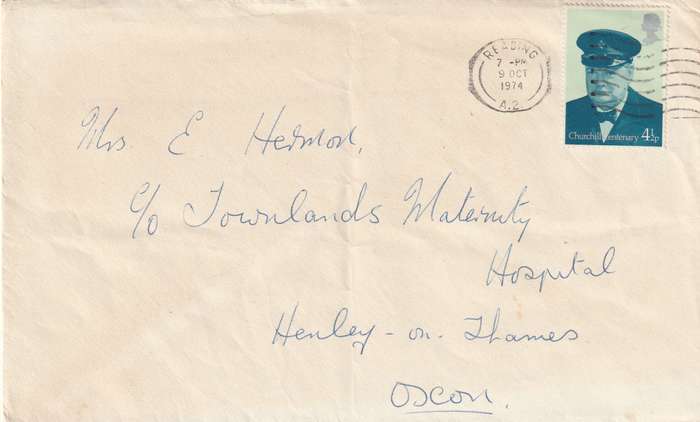 READING
7 - PM
9 OCT
1974
A.2.
Churchill Centenary 4½p
Mrs. E Hermon,
c/o Townlands Maternity
Hospital
Henley-on-Thames
Oxon.